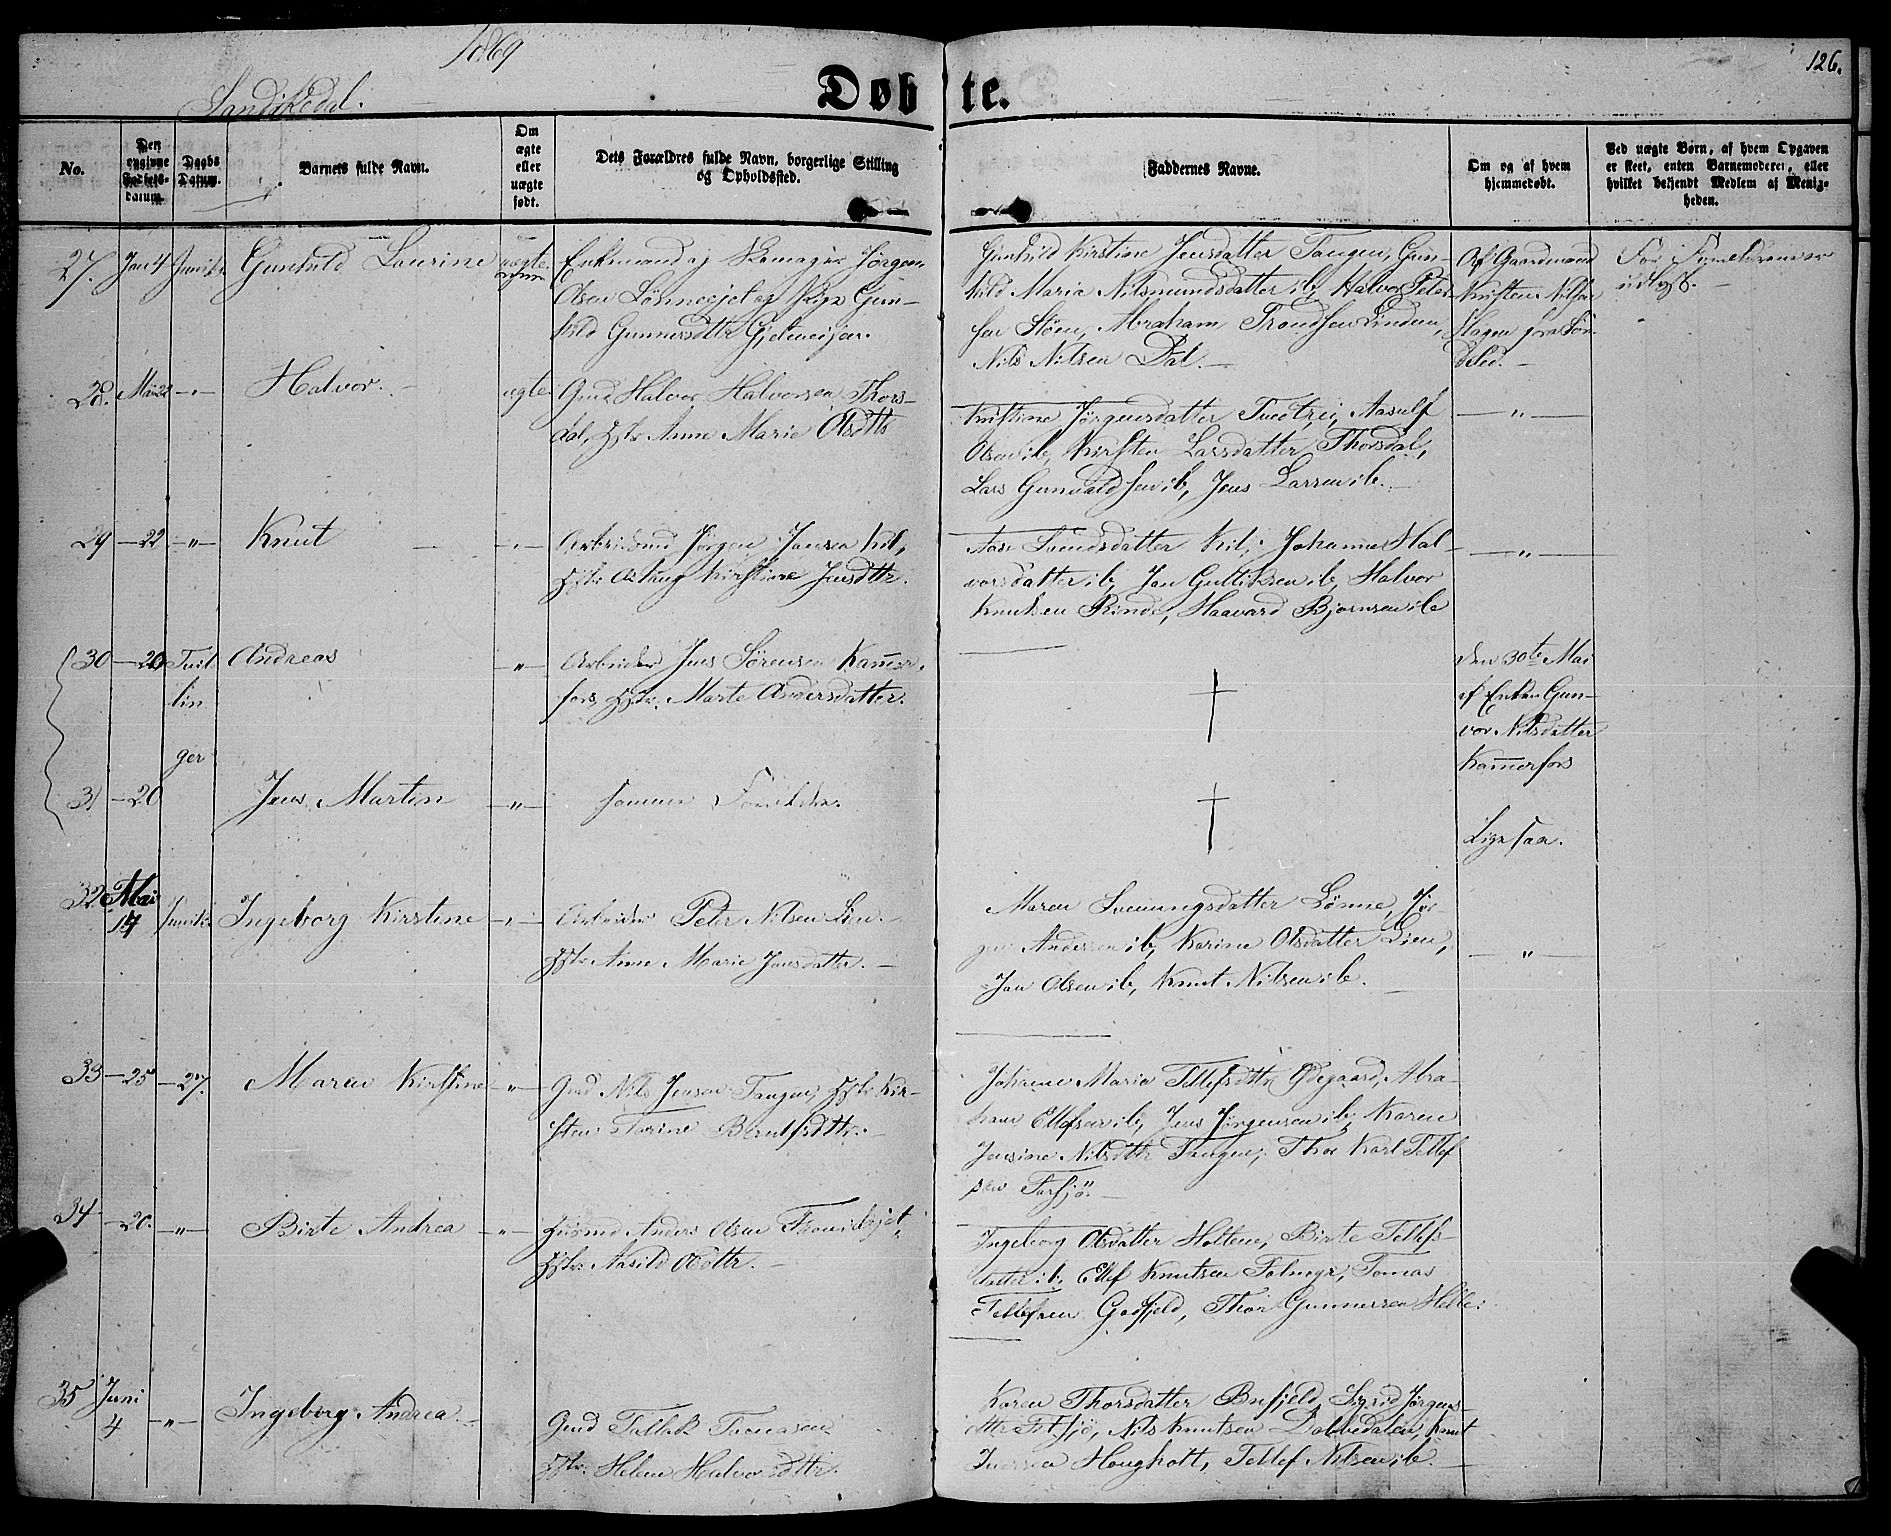 1869
126.
Sandikedal.
Døbte.
No.
Den
opgivne
Fødsels-
datum.
Daabs
Datum.
Barnets fulde Navn.
Om
ægte
eller
uægte
født.
Dets Forældres fulde Navn, borgerlige Stilling
og Opholdssted.
Faddernes Navne.
Om og af hvem
hjemmedøbt.
Ved uægte Børn, af hvem Opgaven
er skeet, enten Barnemoderen, eller
hvilket bekjendt Medlem af Menig-
heden.
27. Jan 4 Gunhild Laurine uægte
Enkemand og Skomager Jørgen
Olsen Lønneejet og Pige Gun-
hild Gunnersdttr Gjeteneijer.
Gunhild Kirstine Jensdatter Tangen, Gun-
hild Maria Nilsmundsdatter ib, Halvor Peter-
sen Støen, Abraham Trondsen Linden,
Nils Nilsen Dal.
Af Gaardmand
Kristen Nilsen
Hagen fra Søn-
deled.
For Forældrene er
udlyst.
28. Mai 22 -"- Halvor. ægte
Gmd Halvor Halvorsen Thors-
dal, Hstr Anne Marie Olsdttr
Kristine Jørgensdatter Tveitrei, Aasulf
Olsen ib, Kirsten Larsdatter Thorsdal,
Lars Gunvaldsen ib, Jens Larsen ib.
-"-
29 -22 -"- Knut -"-
Arbeidsmd Jørgen Jensen Kil,
Hstr Aslaug Kirstine Jensdttr.
Aase Svendsdatter Kil, Johanne Hal-
vorsdatter ib, Jan Gulliksen ib, Halvor
Knutsen Rinde, Haavard Bjørnsen ib
-"-
30 -20 Tvil
lin
ger
Andreas -"-
Arbeider Jens Sørensen Kammer-
fors, Hstr. Marte Andersdatter.
†
Den 30te Mai
af Enken Gun-
vor Nilsdatter
Kammerfors
31 -20 Jens Martin -"-
samme Forældre.
†
Ligesaa.
32 Mai
17 Ingeborg Kirstine -"-
Arbeider Peter Nilsen Lien.
Hstr Anne Marie Jensdatter.
Maren Sveinungsdatter Lønne, Jør-
gen Andersen ib, Karine Olsdatter Lien,
Jan Olsen ib, Knut Nilsen ib.
-"-
33 -25 -27. Maren Kirstine -"-
Gmd Nils Jensen Tangen, Hstr Kir-
sten Torine Berntsdttr.
Johanne Maria Tellefsdttr Ødegaard, Abra-
ham Ellefsen ib, Jens Jørgensen ib, Karen
Jensine Nilsdttr Tangen, Thor Karl Tellef
sen Farsjø.
34 -20. -"- Birte Andrea -"-
Husmd Anders Olsen Trondsejet,
Hstr. Aasild Olsdttr.
Ingeborg Olsdatter Holtene, Birte Tellefs-
datter ib, Ellef Knutsen Folmyr, Tomas
Tellefsen Godfjeld, Thor Gunnersen Helle.
35 Juni
4 -"- Ingeborg Andrea
Gmd Tellef Tomasen
Hstr. Helene Halvorsdttr.
Karen Thorsdatter Bufjeld, Sigrid Jørgens-
dttr Fitsjø, Nils Knutsen Dobbedalen, Knut
Iversen Haugholt, Tellef Nilsen ib.